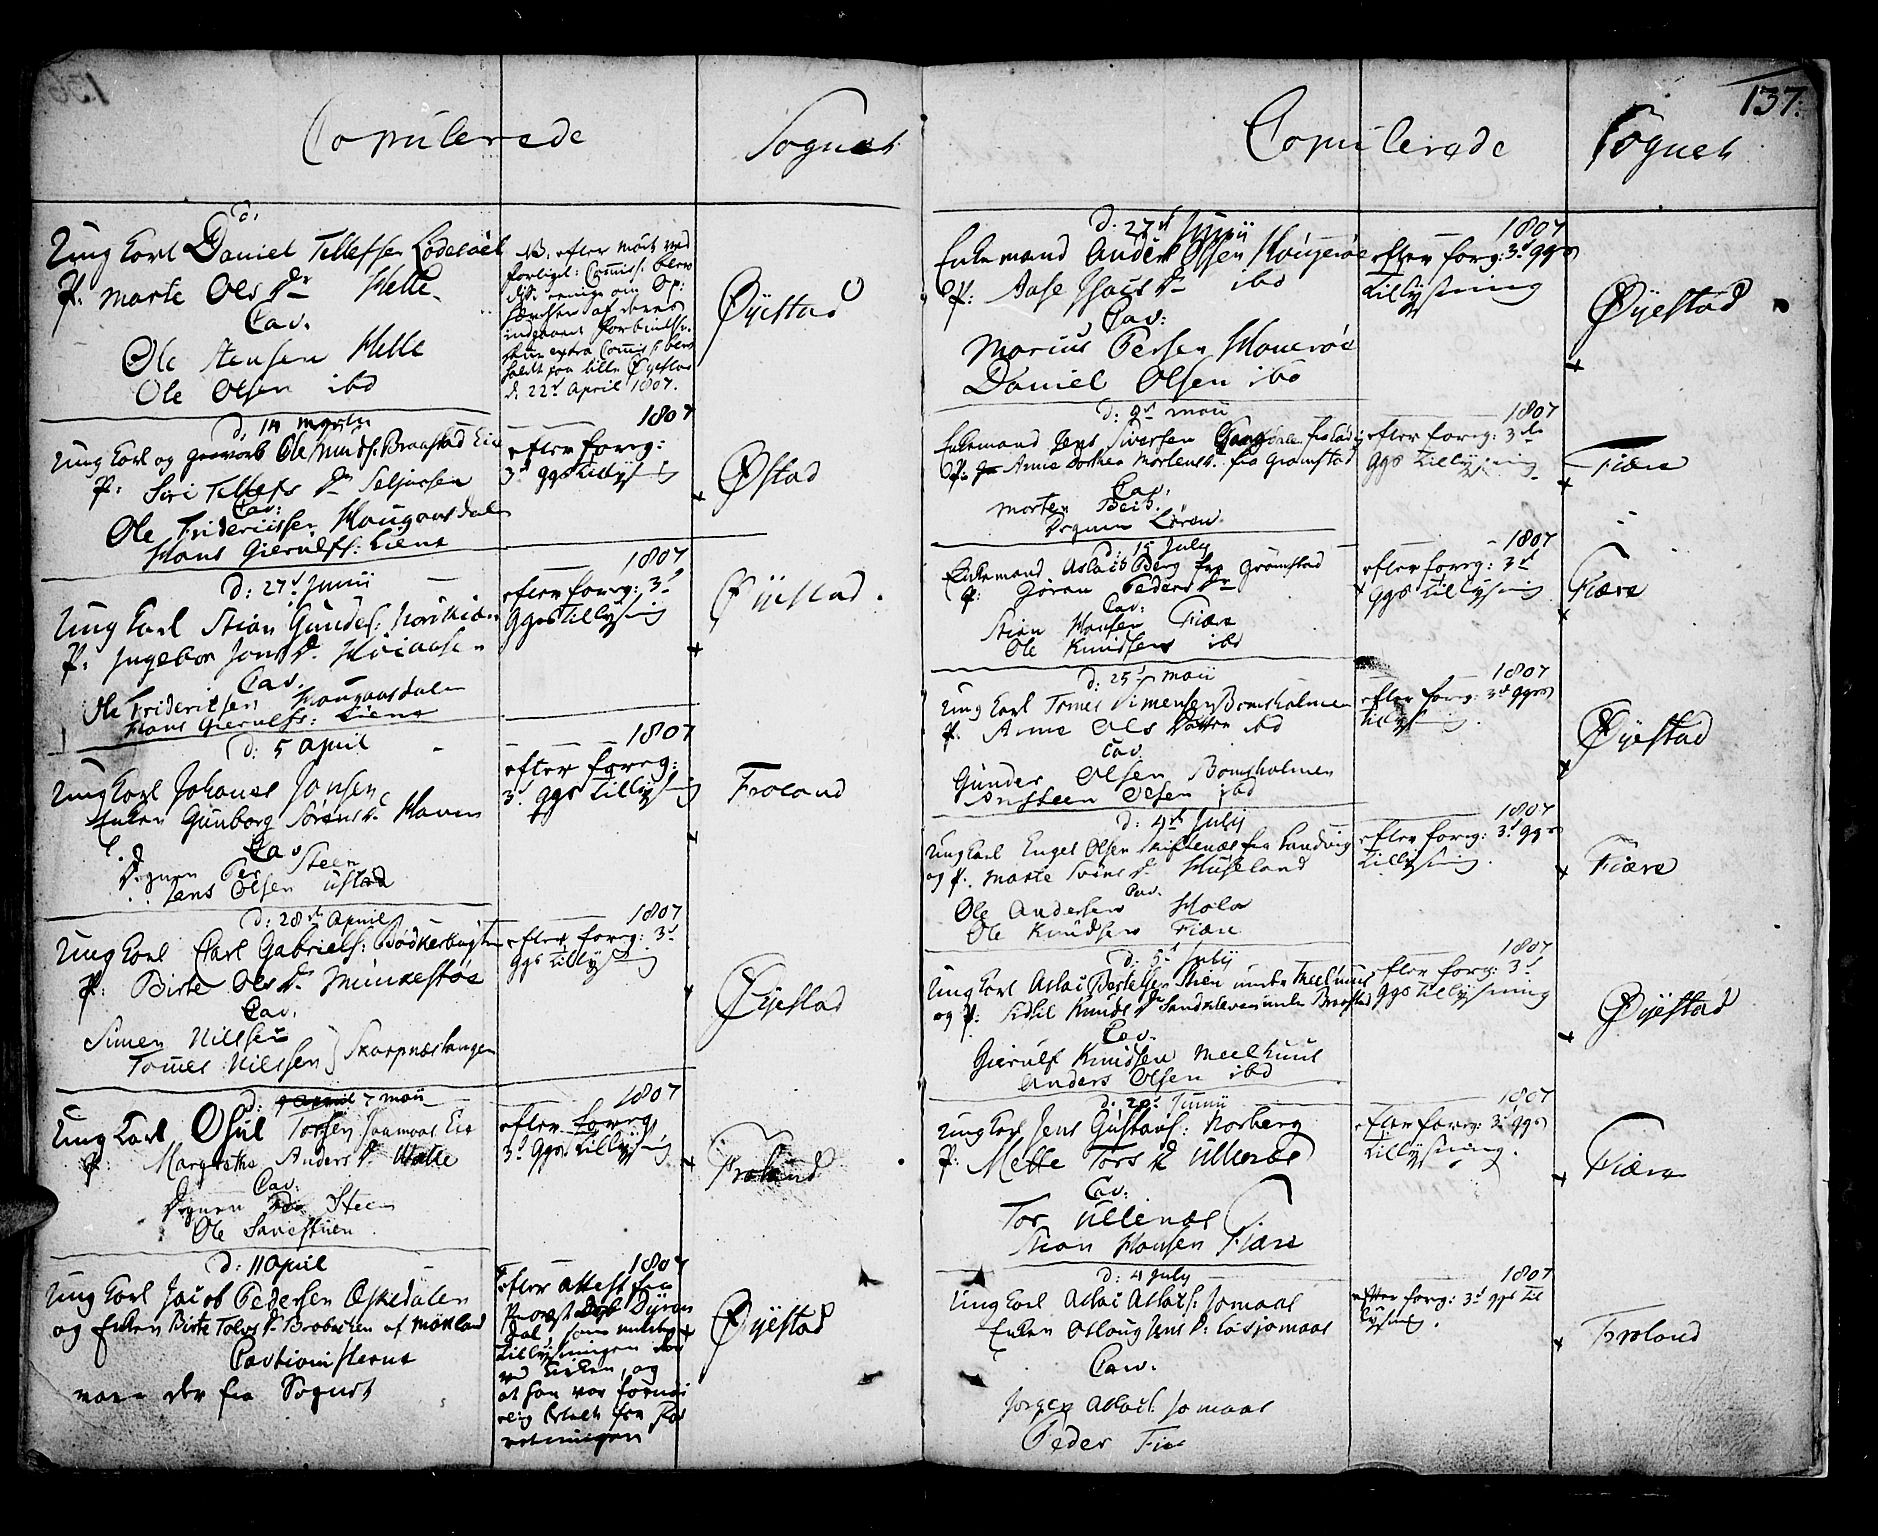 Copulerede
Sognet
d.
Ung Karl Daniel Tellefsen Lødesøel
P: Marte Ols Dr Helle
Cav.
Ole Stensen Helle
Ole Olsen ibd
NB. efter Møde ved
forligel: Commiss:
ere enige om Op:
hævelsen af deres
indgaaet forbindelse
extra Commiss:
holdt paa lille Øyestad
d. 22d April 1807.
Øyestad
d. 14 Martii
Ung Karl og Ole Knuds: Braastad
P: Siri Tellefs Dr Seljaasen
Cav:
Ole Friderichsen Hougaasdalen
Hans Gierulfs: Liene
1807
efter foreg:
3d ggs tillysning
Østad
d: 27d Junii
Ung Karl Stian Gundes:
P: Ingebor Jons D.
Cav.
Ole Fridericksen Hougaasdalen
Hans Gierulfs: Liene
1807
efter foreg: 3d
ggs tillysning
Øyestad.
d: 5 April
Ung Karl Johanes Jonsen
Enken Gunborg Sørens D. Haven
Cav
Degnen Per Steen
Jens Olsen Ustad
1807
efter foreg:
3d ggs tillysning
Froland
d: 28de April
Ung Karl Carl Gabriels: Bødkerbugten
P: Birte Ols Dr Munkestøe
Cav.
Simen Nilssen
Tomes Nilssen } Skarpnæstangen
1807
efter foreg: 3d
ggs tillysning
Øyestad
d: 7 Maii
Ung Karl Osul Torsen Jaamaas
P: Margrethe Anders D.
Cav.
Degnen Per Steen
Ole Savestuen
1807
efter foreg
3d ggs tillysning
Froland
d: 11 April
Ung Karl Jacob Pedersen Askedalen
og Enken Birte Tolvs Dr Brobacken af Møxland
Cautionisterne
vare der fra Sognet
1807
efter Attest fra
Provst
dal, som
tillysningen
ved Kirken, og
at han var
for
retningen
Øyestad
137.
Copulerede
Sognet
d. 27d Junii
Enkemand Anders Olsen
P: Aase Isacs Dr ibd
Cav:
Marius Persen
Daniel Olsen ibd
1807
efter foreg: 3d ggs
tillysning
Øyestad
d: 9d Maii
Enkemand Jens Sivertsen
P: Anne Dorthea Mortens D. fra Gromstad
Cav,
Morten Beib.
Degnen Løren.
1807
efter foreg: 3de
ggs tillysning
Fiære
d: 15 July
Enkemand Aslack Berg fra Gromstad
P: Gøran Peders Dr
Cav:
Stian Hansen Fiære
Ole Knudsen ibd
1807
efter foreg: 3d
ggs tillysning
Fiære
d: 25d Maii
Ung Karl Tomes Simensen Bomsholmen
P. Anne Ols Datter ibd
Cav.
Gunder Olsen Bomsholmen
Onsteen Olsen ibd
1807
efter foreg: 3d ggs
tillysning.
Øyestad
d: 4de July
Ung Karl Engel Olsen fra Landvig
og P. Marte Svens D. Huseland
Cav.
Ole Andersen Hola
Ole Knudsen Fiære
1807
efter foreg: 3d ggs
tillysning.
Fiære
d: 5d July
Ung Karl Aslac Bertelsen Stien under Meelhuus
og P: Sidsil Knuds Dr Sandkleven under Braastad
Cav.
Gierulf Knudsen Meelhuus
Anders Olsen ibd
1807
efter foreg: 3d
ggs tillysning
Øyestad
d: 20d Junii
Ung Karl Jens Gustavs: Norberg
P: Mette Tors D. Ullenæs
Cav:
Tor Ullenæs
Stian Hansen Fiære
1807
efter foreg: 3d ggs
tillysning.
Fiære
d: 4 July
Ung Karl Aslac Aslacs: Jomaas
Enken Aslaug Jens D: Jomaas
Cav.
Jorgen Aslacs: Jomaas
Peder
1807
efter foreg: 3d ggs til
lysning.
Froland